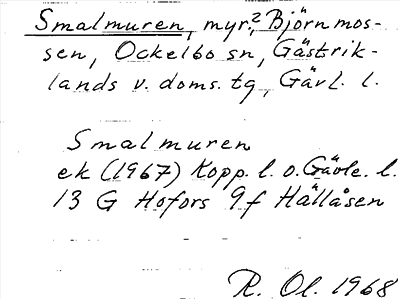 Smalmuren, myr,² Björnmos-
sen, Ockelbo sn, Gästrik-
lands v. doms. tg, Gävl. l.
Smalmuren
ek (1967) Kopp. l. o. Gävle. l.
13 G Hofors 9f Hällåsen
R. Ol. 1968